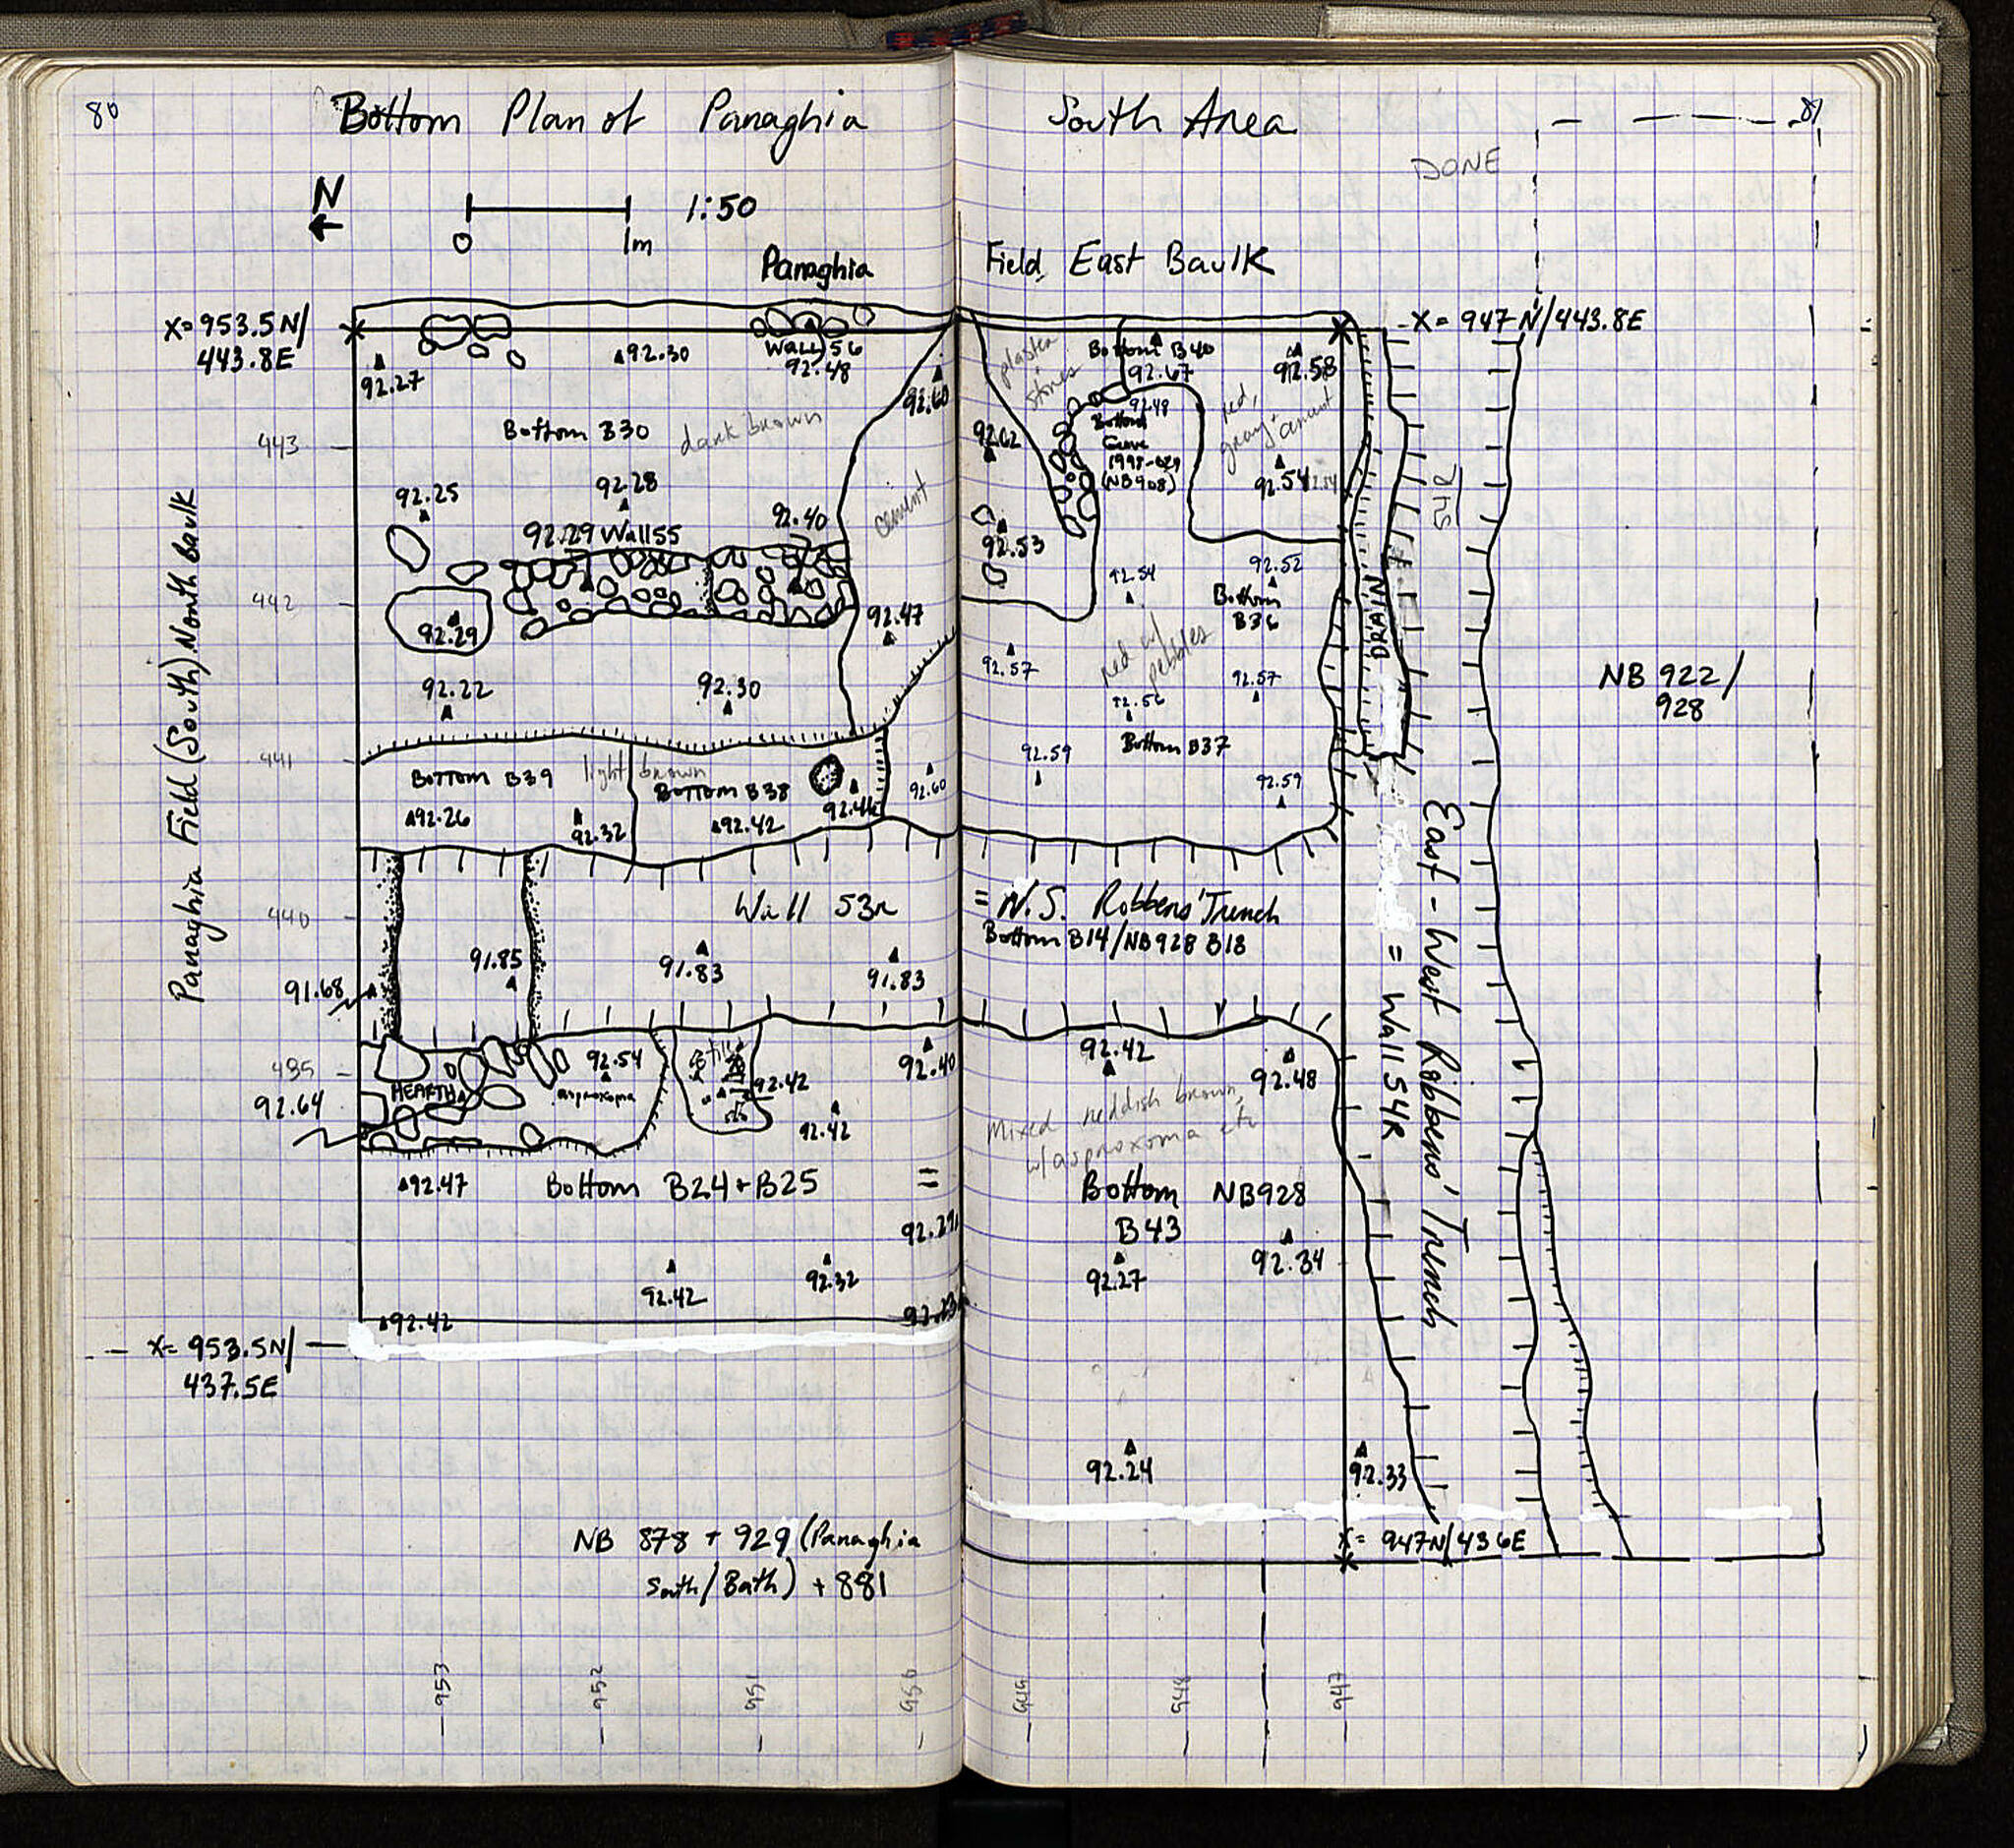 80
Bottom Plan of Panaghia South Area
81
DONE
N
0 1m 1:50
Panaghia Field East Baulk
X= 953.5N/
443.8E
X= 947N/443.8E
92.27
92.30
Wall 56
92.48
92.60
plaster
stones
Bottom B40
92.67
92.58
Bottom B30
dark brown
443
92.62
92.48
Bottom
Grave
(NB908)
red,
92.54
92.25
92.28
92.29 Wall 55
92.40
cement
92.53
442
92.29
92.47
92.54
92.52
Bottom
B36
DRAIN
92.22
92.30
92.57
red w/
pebbles
92.57
92.56
NB 922/
928
441
Bottom B39
light brown
Bottom B38
92.26
92.32
92.42
92.44
92.60
92.59
Bottom B37
92.59
Panaghia Field (South) North Baulk
440
Wall 53R = N.S. Robbers' Trench
Bottom B14/NB928 B18
91.68
91.85
91.83
91.83
East-West Robbers' Trench
= Wall 54R
HEARTH
92.54
asproxoma
92.64
92.42
92.42
92.40
92.42
92.48
Mixed reddish brown,
w/asproxoma etc
92.47
Bottom B24+B25 = Bottom NB928
B43
92.42
92.32
92.27
92.34
92.42
X= 953.5N/
437.5E
92.24
92.33
X= 947N/436E
NB 878 + 929 (Panaghia
South/Bath) + 881
953
952
951
950
949
948
947